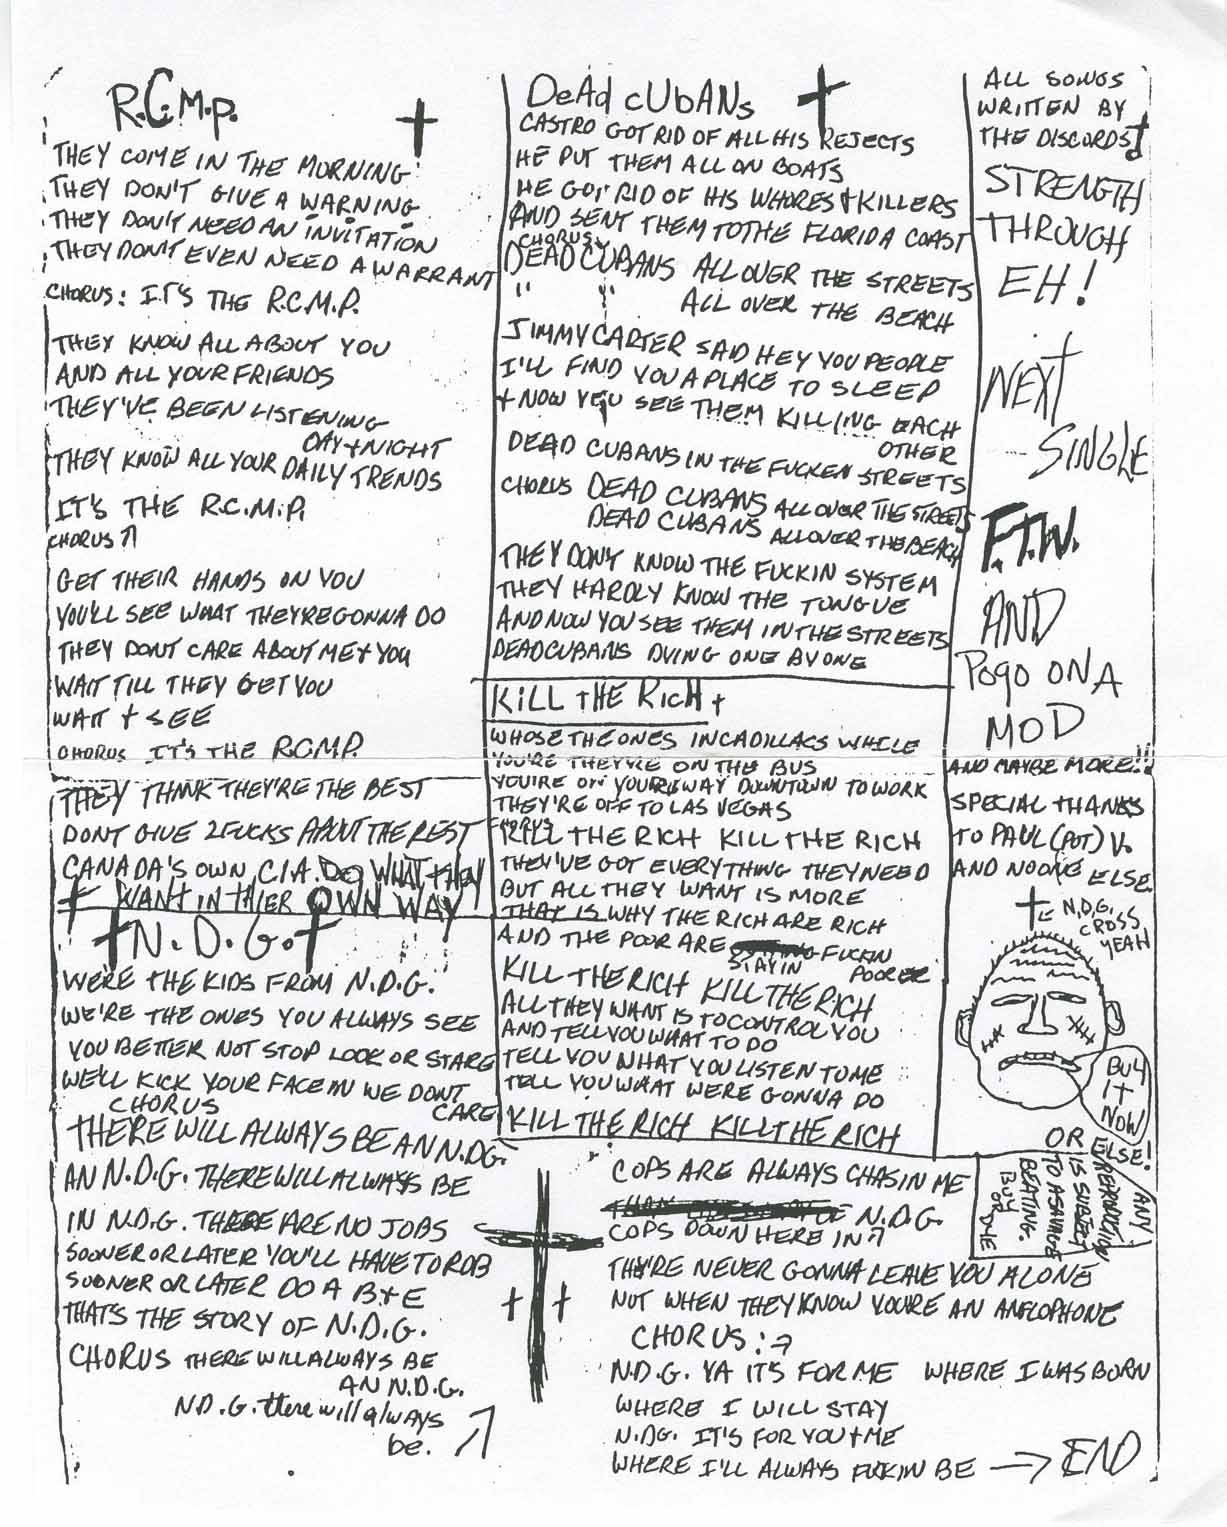 R.C.M.P.
THEY COME IN THE MORNING
THEY DON'T GIVE A WARNING
THEY DON'T NEED AN INVITATION
THEY DON'T EVEN NEED A WARRANT
CHORUS: IT'S THE R.C.M.P.
THEY KNOW ALL ABOUT YOU
AND ALL YOUR FRIENDS
THEY'VE BEEN LISTENING
DAY + NIGHT
THEY KNOW ALL YOUR DAILY TRENDS
IT'S THE R.C.M.P.
CHORUS
GET THEIR HANDS ON YOU
YOU'LL SEE WHAT THEYRE GONNA DO
THEY DONT CARE ABOUT ME + YOU
WAIT TILL THEY GET YOU
WAIT + SEE
CHORUS IT'S THE R.C.M.P.
THEY THINK THEY'RE THE BEST
DONT GIVE 2 FUCKS ABOUT THE REST
CANADA'S OWN C.I.A. DO WHAT THEY
WANT IN THIER OWN WAY
N.D.G.
WE'RE THE KIDS FROM N.D.G.
WE'RE THE ONES YOU ALWAYS SEE
YOU BETTER NOT STOP LOOK OR STARE
WE'LL KICK YOUR FACE IN WE DONT
CARE
CHORUS
THERE WILL ALWAYS BE AN N.DG.
AN N.D.G. THERE WILL ALWAYS BE
IN N.D.G. THERE ARE NO JOBS
SOONER OR LATER YOU'LL HAVE TO ROB
SOONER OR LATER DO A B+E
THAT'S THE STORY OF N.D.G.
CHORUS THERE WILL ALWAYS BE
AN N.D.G.
N.D.G. there will always
be.
DeAd cUbANs
CASTRO GOT RID OF ALL HIS REJECTS
HE PUT THEM ALL ON BOATS
HE GOT RID OF HIS WHORES + KILLERS
AND SENT THEM TO THE FLORIDA COAST
CHORUS
DEAD CUBANS ALL OVER THE STREETS
" " ALL OVER THE BEACH
JIMMY CARTER SAID HEY YOU PEOPLE
I'LL FIND YOU A PLACE TO SLEEP
+ NOW YOU SEE THEM KILLING EACH
OTHER
DEAD CUBANS IN THE FUCKEN STREETS
CHORUS DEAD CUBANS ALL OVER THE STREETS
DEAD CUBANS ALL OVER THE BEACH
THEY DON'T KNOW THE FUCKIN SYSTEM
THEY HARDLY KNOW THE TONGUE
AND NOW YOU SEE THEM IN THE STREETS
DEAD CUBANS DYING ONE BY ONE
KiLL THE RicH
WHOSE THE ONES IN CADILLACS WHILE
YOU'RE THEY'RE ON THE BUS
YOU'RE ON YOUR WAY DOWNTOWN TO WORK
THEY'RE OFF TO LAS VEGAS
CHORUS
KILL THE RICH KILL THE RICH
THEY'VE GOT EVERYTHING THEY NEED
BUT ALL THEY WANT IS MORE
THAT IS WHY THE RICH ARE RICH
AND THE POOR ARE FUCKIN
STAYIN POORER
KILL THE RICH KILL THE RICH
ALL THEY WANT IS TO CONTROL YOU
AND TELL YOU WHAT TO DO
TELL YOU WHAT YOU LISTEN TO ME
TELL YOU WHAT WERE GONNA DO
KILL THE RICH KILL THE RICH
COPS ARE ALWAYS CHASIN ME
N.D.G.
COPS DOWN HERE IN
THEY'RE NEVER GONNA LEAVE YOU ALONE
NOT WHEN THEY KNOW YOU'RE AN ANFLOPHONE
CHORUS:
N.D.G. YA IT'S FOR ME WHERE I WAS BORN
WHERE I WILL STAY
N.DG. IT'S FOR YOU + ME
WHERE I'LL ALWAYS FUCKIN BE → END
ALL SONGS
WRITTEN BY
THE DISCORDS!
STRENGTH
THROUGH
EH!
NEXT
SINGLE
F.T.W.
AND
Pogo ON A
MOD
AND MAYBE MORE!!!
SPECIAL THANKS
TO PAUL (POT) V.
AND NO ONE ELSE
N.D.G.
CROSS
YEAH
BUY
IT
NOW
OR ELSE!
ANY
REPRODUCTION
IS SUBJECT
TO A SAVAGE
BEATING.
BUY
OR DIE